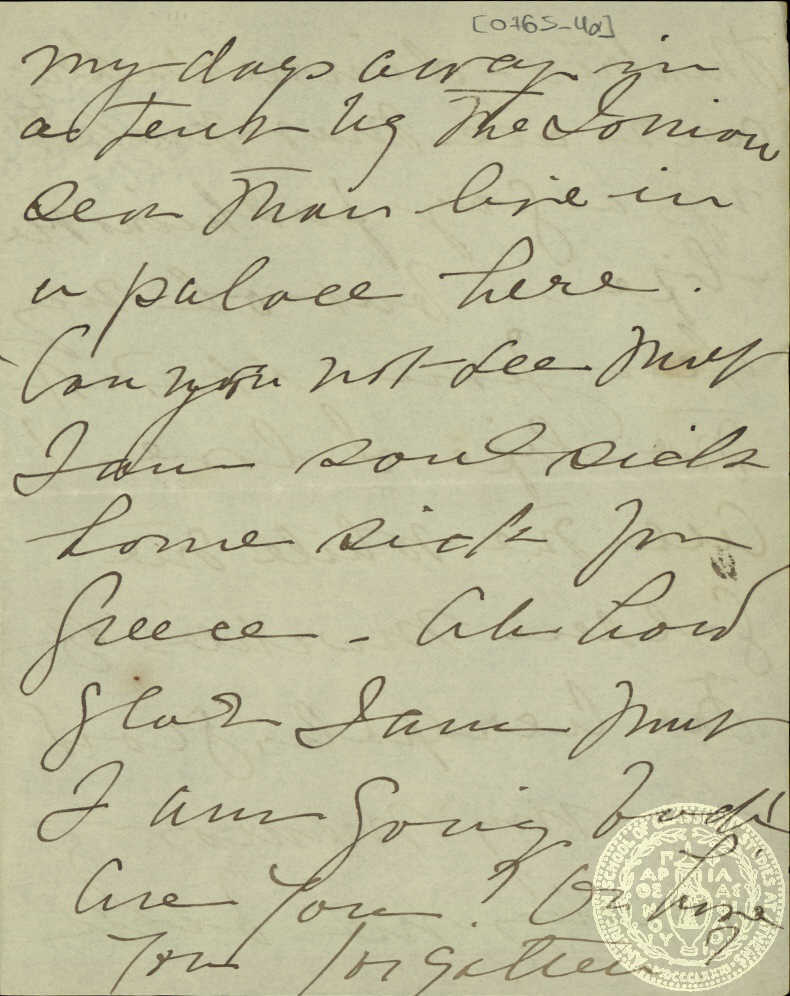 [0765-4a]
my days away in
a tent by the Ionian
sea than live in
a palace here.
Can you not see that
I am soul sick
home sick for
Greece - Ah how
glad I am that
I am going back!
Are you? Or have
you forgotten?